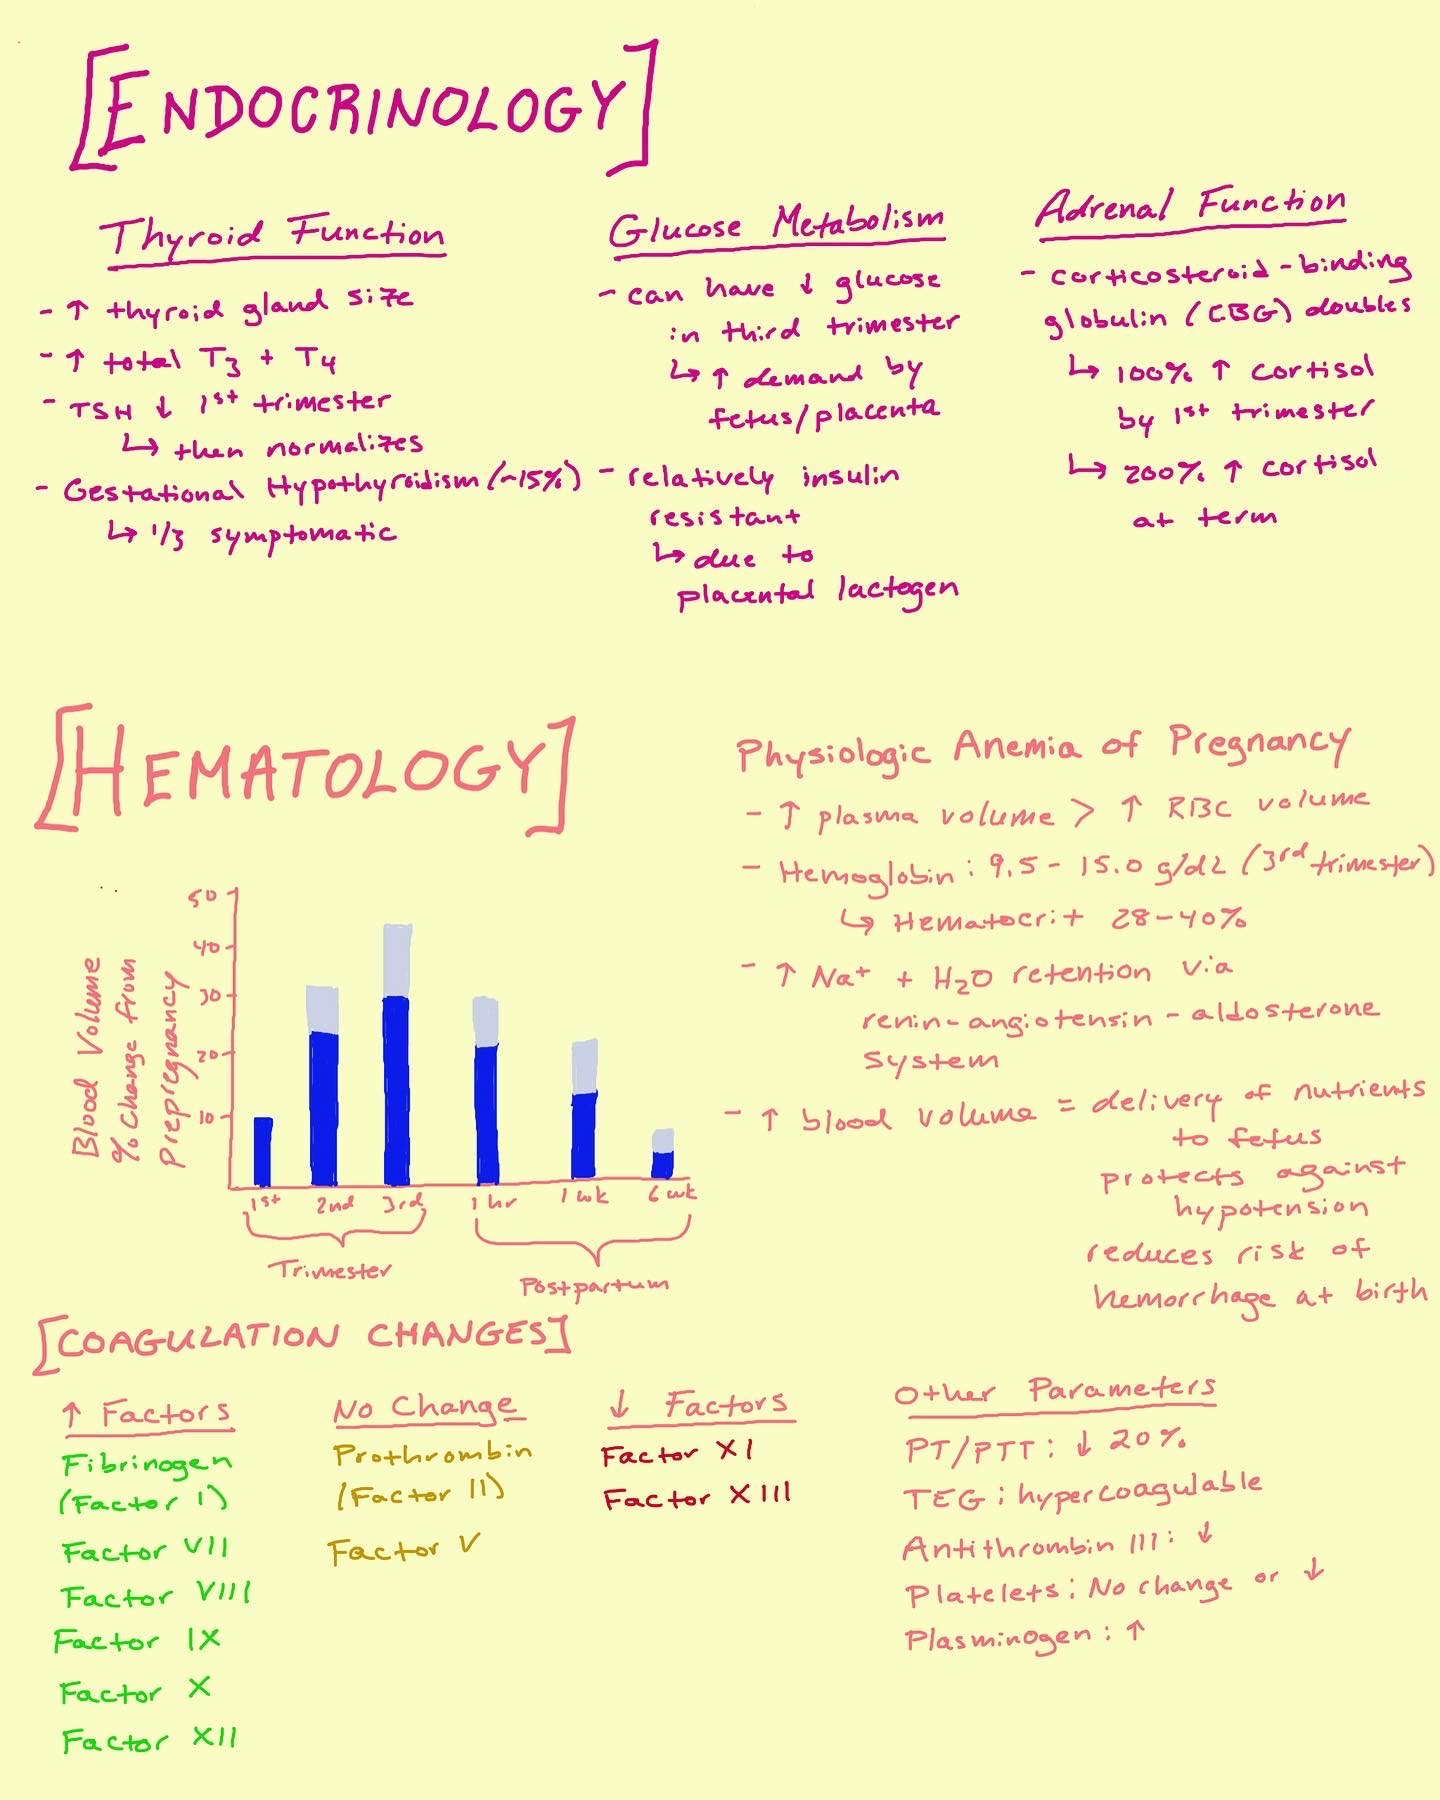 [ENDOCRINOLOGY]
Thyroid Function
- ↑ thyroid gland size
- ↑ total T3 + T4
- TSH ↓ 1st trimester
↳ then normalizes
- Gestational Hypothyroidism (~15%)
↳ 1/3 symptomatic
Glucose Metabolism
- can have ↓ glucose
in third trimester
↳ ↑ demand by
fetus/placenta
- relatively insulin
resistant
↳ due to
placental lactogen
Adrenal Function
- corticosteroid-binding
globulin (CBG) doubles
↳ 100% ↑ cortisol
by 1st trimester
↳ 200% ↑ cortisol
at term
[HEMATOLOGY]
Blood Volume
% Change from
Prepregnancy
50
40
30
20
10
1st 2nd 3rd 1 hr 1 wk 6 wk
Trimester
Postpartum
Physiologic Anemia of Pregnancy
- ↑ plasma volume > ↑ RBC volume
- Hemoglobin: 9.5 - 15.0 g/dL (3rd trimester)
↳ Hematocrit 28-40%
- ↑ Na+ + H2O retention via
renin-angiotensin-aldosterone
system
- ↑ blood volume = delivery of nutrients
to fetus
protects against
hypotension
reduces risk of
hemorrhage at birth
[COAGULATION CHANGES]
↑ Factors
Fibrinogen
(Factor I)
Factor VII
Factor VIII
Factor IX
Factor X
Factor XII
No Change
Prothrombin
(Factor II)
Factor V
↓ Factors
Factor XI
Factor XIII
Other Parameters
PT/PTT: ↓ 20%
TEG: hypercoagulable
Antithrombin III: ↓
Platelets: No change or ↓
Plasminogen: ↑